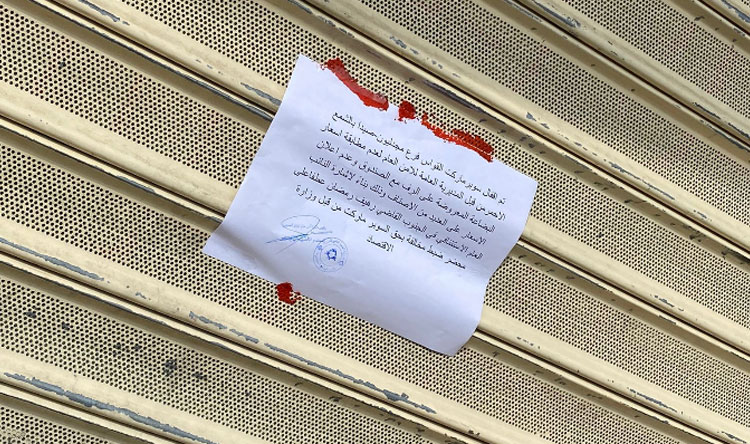 تم اقفال سوبر ماركت القواس فرع مجدليون-صيدا بالشمع
الاحمر من قبل المديرية العامة للامن العام لعدم مطابقة اسعار
البضائع المعروضة على الرف مع الصندوق وعدم اعلان
الاسعار على العديد من الاصناف وذلك بناء لاشارة النائب
العام الاستئنافي في الجنوب القاضي رهيف رمضان عطفا على
محضر ضبط مخالفة بحق السوبر ماركت من قبل وزارة
الاقتصاد